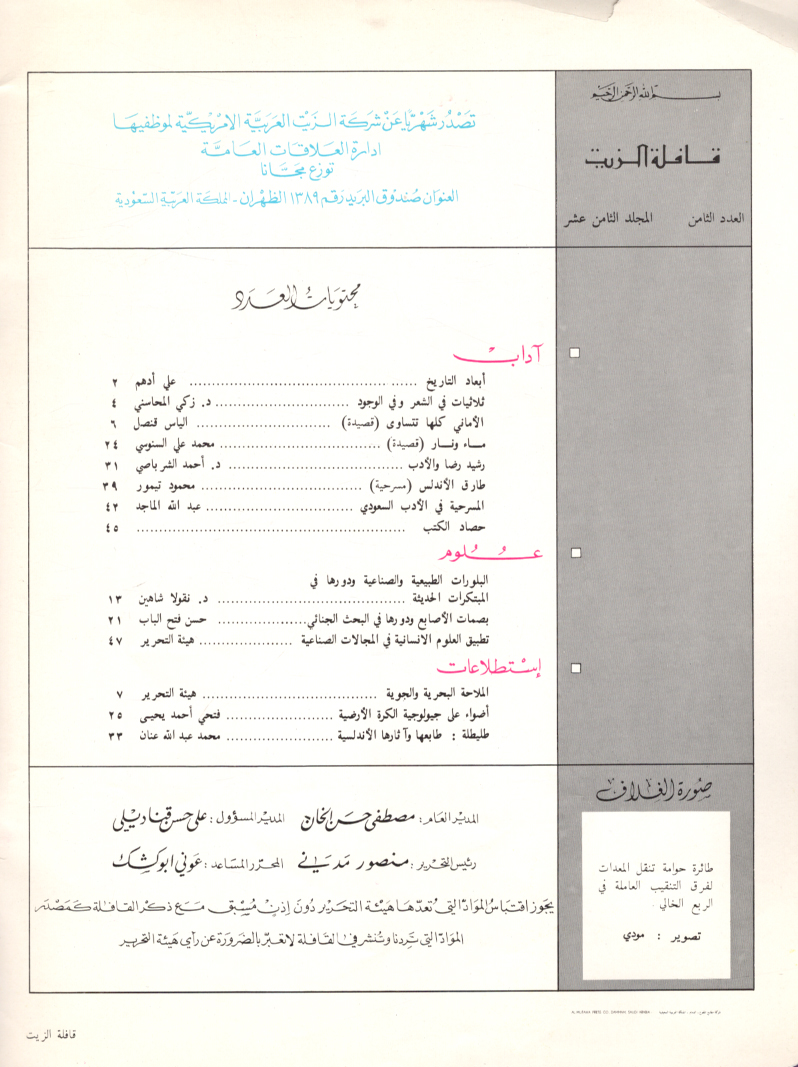 بسم الله الرحمن الرحيم
قافلة الزيت
العدد الثامن المجلد الثامن عشر
تصدر شهريًا عن شركة الزيت العربية الامريكية لموظفيها
ادارة العلاقات العامة
توزع مجانا
العنوان صندوق البريد رقم ١٣٨٩ الظهران - المملكة العربية السعودية
محتويات العدد
آداب
أبعاد التاريخ ........ علي أدهم ٢
ثلاثيات في الشعر وفي الوجود ........ د. زكي المحاسني ٤
الأماني كلها تتساوى (قصيدة) ........ الياس قنصل ٦
مـاء ونـار (قصيدة) ........ محمد علي السنوسي ٢٤
رشيد رضا والأدب ........ د. أحمد الشرباصي ٣١
طارق الأندلس (مسرحية) ........ محمود تيمور ٣٩
المسرحية في الأدب السعودي ........ عبد الله الماجد ٤٢
حصاد الكتب ........ ٤٥
عـلوم
البلورات الطبيعية والصناعية ودورها في
المبتكرات الحديثة ........ د. نقولا شاهين ١٣
بصمات الأصابع ودورها في البحث الجنائي ........ حسن فتح الباب ٢١
تطبيق العلوم الانسانية في المجالات الصناعية ........ هيئة التحرير ٤٧
إستطلاعات
الملاحة البحرية والجوية ........ هيئة التحرير ٧
أضواء على جيولوجية الكرة الأرضية ........ فتحي أحمد يحيى ٢٥
طليطلة : طابعها وآثارها الأندلسية ........ محمد عبد الله عنان ٣٣
صورة الغلاف
طائرة حوامة تنقل المعدات
لفرق التنقيب العاملة في
الربع الخالي .
تصوير : مودي
المدير العام: مصطفى حسن الخان المدير المسؤول: علي حسن قناديلي
رئيس التحرير: منصور مدني المحرر المساعد: عوني ابوكشك
يجوز اقتباس المواد التي تعدها هيئة التحرير دون إذن مسبق مع ذكر القافلة كمصدر
المواد التي تردنا وتنشر في القافلة لا تعبر بالضرورة عن رأي هيئة التحرير
قافلة الزيت